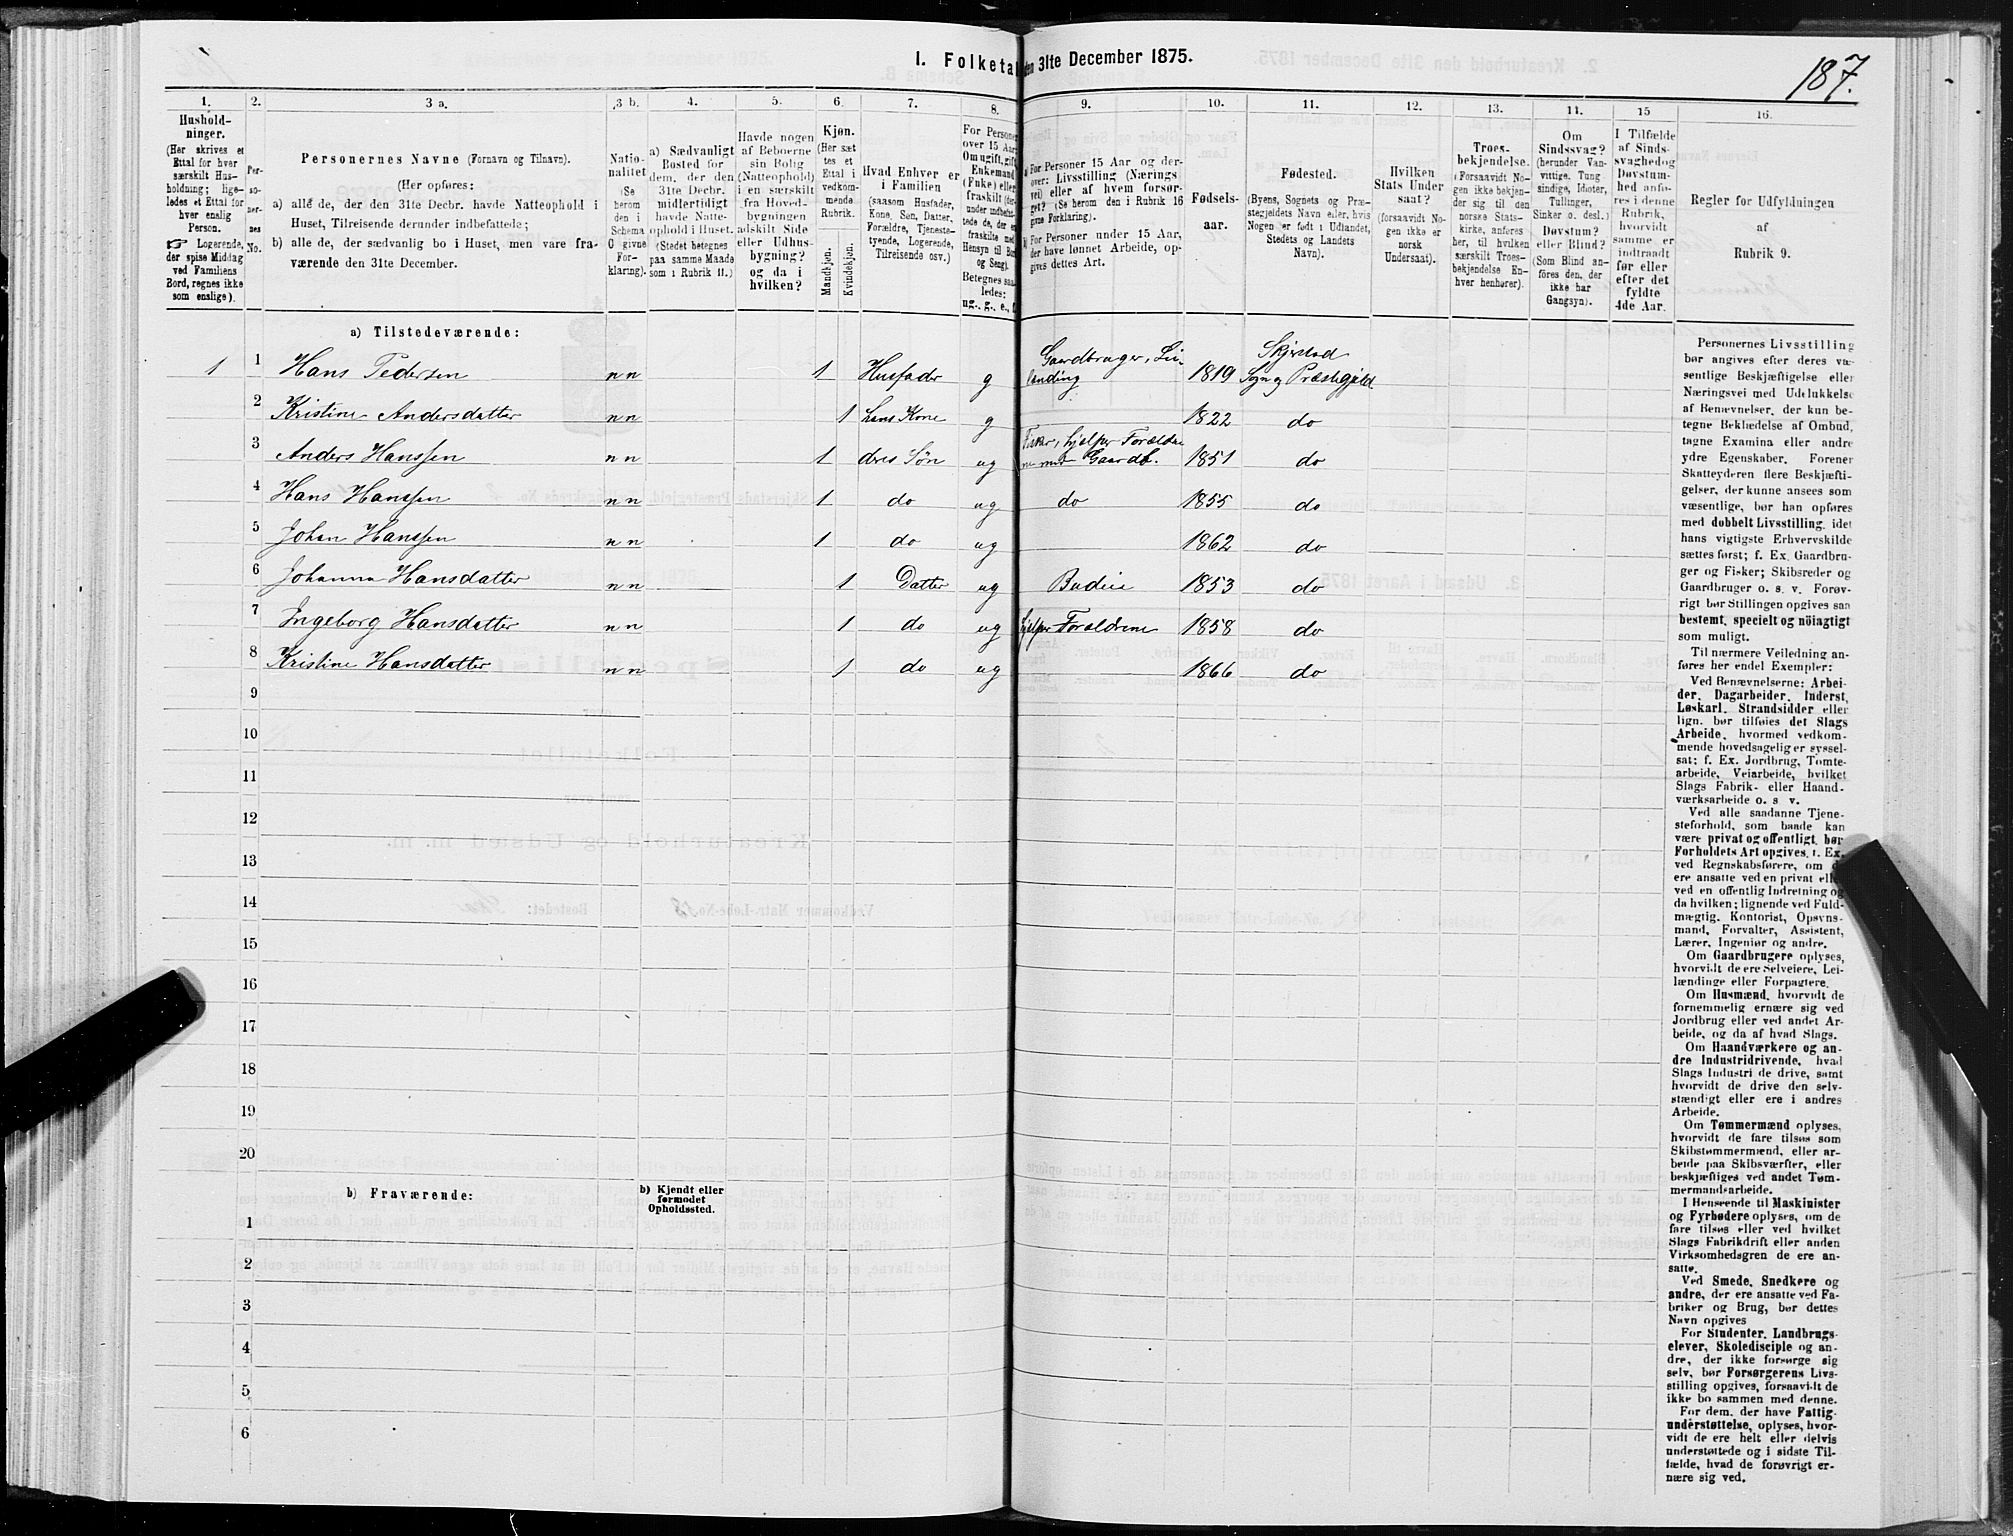 I. Folketal den 31te December 1875.
187.
1. 2. 3 a. 3 b. 4. 5. 6. 7. 8. 9. 10. 11. 12. 13. 14. 15 16.
Hushold-
ninger.
(Her skrives et
Ettal for hver
særskilt Hus-
holdning; lige-
ledes et Ettal for
hver enslig
Person.
☞ Logerende,
der spise Middag
ved Familiens
Bord, regnes ikke
som enslige).
Per-
so-
ner-
nes
No.
Personernes Navne (Fornavn og Tilnavn).
(Her opføres:
a) alle de, der den 31te Decbr. havde Natteophold i
Huset, Tilreisende derunder indbefattede;
b) alle de, der sædvanlig bo i Huset, men vare fra-
værende den 31te December.
Natio-
nalitet
(Se
herom
den i
Schema
C givne
For-
klaring).
a) Sædvanligt
Bosted for
dem, der den
31te Decbr.
midlertidigt
havde Natte-
ophold i Huset.
(Stedet betegnes
paa samme Maade
som i Rubrik 11.)
Havde nogen
af Beboerne
sin Bolig
(Natteophold)
i en særskilt
fra Hoved-
bygningen
adskilt Side
eller Udhus-
bygning?
og da i
hvilken?
Kjøn.
(Her sæt
tes et
Ettal i
vedkom-
mende
Rubrik.
Mandkjøn.
Kvindekjøn.
Hvad Enhver er
i Familien
(saasom Husfader,
Kone, Søn, Datter,
Forældre, Tjeneste-
tyende, Logerende,
Tilreisende osv.)
For Personer
over 15 Aar:
Om ugift, gift,
Enkemand
(Enke) eller
fraskilt
Betegnes saa-
ledes:
ug., g., e., f.
a) For Personer 15 Aar og der-
over: Livsstilling (Nærings
vei) eller af hvem forsør-
get? (Se herom den i Rubrik 16
givne Forklaring).
b) For Personer under 15 Aar,
der have lønnet Arbeide, op-
gives dettes Art.
Fødsels-
aar.
Fødested.
(Byens, Sognets og Præ-
stegjeldets Navn eller, hvis
Nogen er født i Udlandet,
Stedets og Landets
Navn).
Hvilken
Stats Under
saat?
(forsaavidt No-
gen ikke er
norsk
Undersaat).
Troes-
bekjendelse.
(Forsaavidt No
gen ikke bekjen-
der sig til den
norske Stats-
kirke, anføres
her, til hvilken
særskilt Troes-
bekjendelse En-
hver henhører).
Om
Sindssvag?
(herunder Van-
vittige, Tung
sindige, Idioter,
Tullinger,
Sinker o. desl.)
Døvstum?
eller Blind?
(Som Blind an-
føres den, der
ikke har
Gangsyn).
I Tilfælde
af Sinds-
svaghed og
Døvstum-
hed anfø-
res i denne
Rubrik,
hvorvidt
samme er
indtraadt
før eller
efter det
fyldte
4de Aar.
Regler for Udfyldningen
af
Rubrik 9.
a) Tilstedeværende:
1 1 Hans Pedersen n n 1 Husfader g Gaardbruger, Lei-
lænding 1819 Skjerstad
Sogn og Præstegjeld
2 Kristine Andersdatter n n 1 hans Kone g 1822 do
3 Anders Hanssen n n 1 deres Søn ug Fisker, hjelper Forældre
ne med Gaardb. 1851 do
4 Hans Hanssen n n 1 do ug do 1855 do
5 Johan Hanssen n n 1 do ug 1862 do
6 Johanna Hansdatter n n 1 Datter ug Budeie 1853 do
7 Ingeborg Hansdatter n n 1 do ug hjelper Forældrene 1858 do
8 Kristine Hansdatter n n 1 do ug 1866 do
9
10
11
12
13
14
15
16
17
18
19
20
b) Fraværende:
b) Kjendt eller
formodet
Opholdssted.
1
2
3
4
5
6
Personernes Livsstilling
bør angives efter deres væ-
sentlige Beskjæftigelse eller
Næringsvei med Udelukkelse
af Benævnelser, der kun be-
tegne Beklædelse af Ombud,
tagne Examina eller andre
ydre Egenskaber. Forener
Skatteyderen flere Beskjæfti-
gelser, der kunne ansees som
væsentlige, bør han opføres
med dobbelt Livsstilling, idet
hans vigtigste Erhvervskilde
sættes først; f. Ex. Gaardbru-
ger og Fisker; Skibsreder og
Gaardbruger o. s. v. Forøv-
rigt bør Stillingen opgives saa
bestemt, specielt og nöiagtigt
som muligt.
Til nærmere Veiledning an-
føres her endel Exempler:
Ved Benævnelserne: Arbei-
der, Dagarbeider, Inderst,
Løskarl, Strandsidder eller
lign. bør tilføies det Slags
Arbeide, hvormed vedkom-
mende hovedsagelig er syssel-
sat; f. Ex. Jordbrug, Tomte-
arbeide, Veiarbeide, hvilket
Slags Fabrik- eller Haand-
værksarbeide o. s v.
Ved alle saadanne Tjene-
steforhold, som baade kan
være privat og offentligt, bør
Forholdets Art opgives, f. Ex.
ved Regnskabsførere, om de
ere ansatte ved en privat eller
ved en offentlig Indretning og
da hvilken; lignende ved Fuld-
mægtig, Kontorist, Opsyns-
mand, Forvalter, Assistent,
Lærer, Ingeniør og andre.
Om Gaardbrugere oplyses,
hvorvidt de ere Selveiere, Lei-
lændinge eller Forpagtere.
Om Husmænd, hvorvidt de
fornemmelig ernære sig ved
Jordbrug eller ved andet Ar-
beide, og da af hvad Slags.
Om Haandværkere og an-
dre Industridrivende, hvad
Slags Industri de drive, samt
hvorvidt de drive den selv-
stændigt eller ere i andres
Arbeide.
Om Tømmermænd oplyses,
hvorvidt de fare tilsøs som
Skibstømmermænd, eller ar-
beide paa Skibsværfter, eller
beskjæftiges ved andet Tøm-
mermandsarbeide.
I Henseende til Maskinister
og Fyrbødere oplyses, om de
fare tilsøs eller ved hvilket
Slags Fabrikdrift eller anden
Virksomhedsgren de ere an-
satte.
Ved Smede, Snedkere og
andre, der ere ansatte ved Fa-
briker og Brug, bør dettes
Navn opgives
For Studenter, Landbrugs-
elever, Skoledisciple og an-
dre, der ikke forsørge sig
selv, bør Forsørgerens Livs-
stilling opgives, forsaavidt de
ikke bo sammen med denne.
For dem, der have Fattig-
understøttelse, oplyses, hvor-
vidt de ere helt eller delvis
understøttede og i sidste Til-
fælde, hvad de forøvrigt er-
nære sig ved.